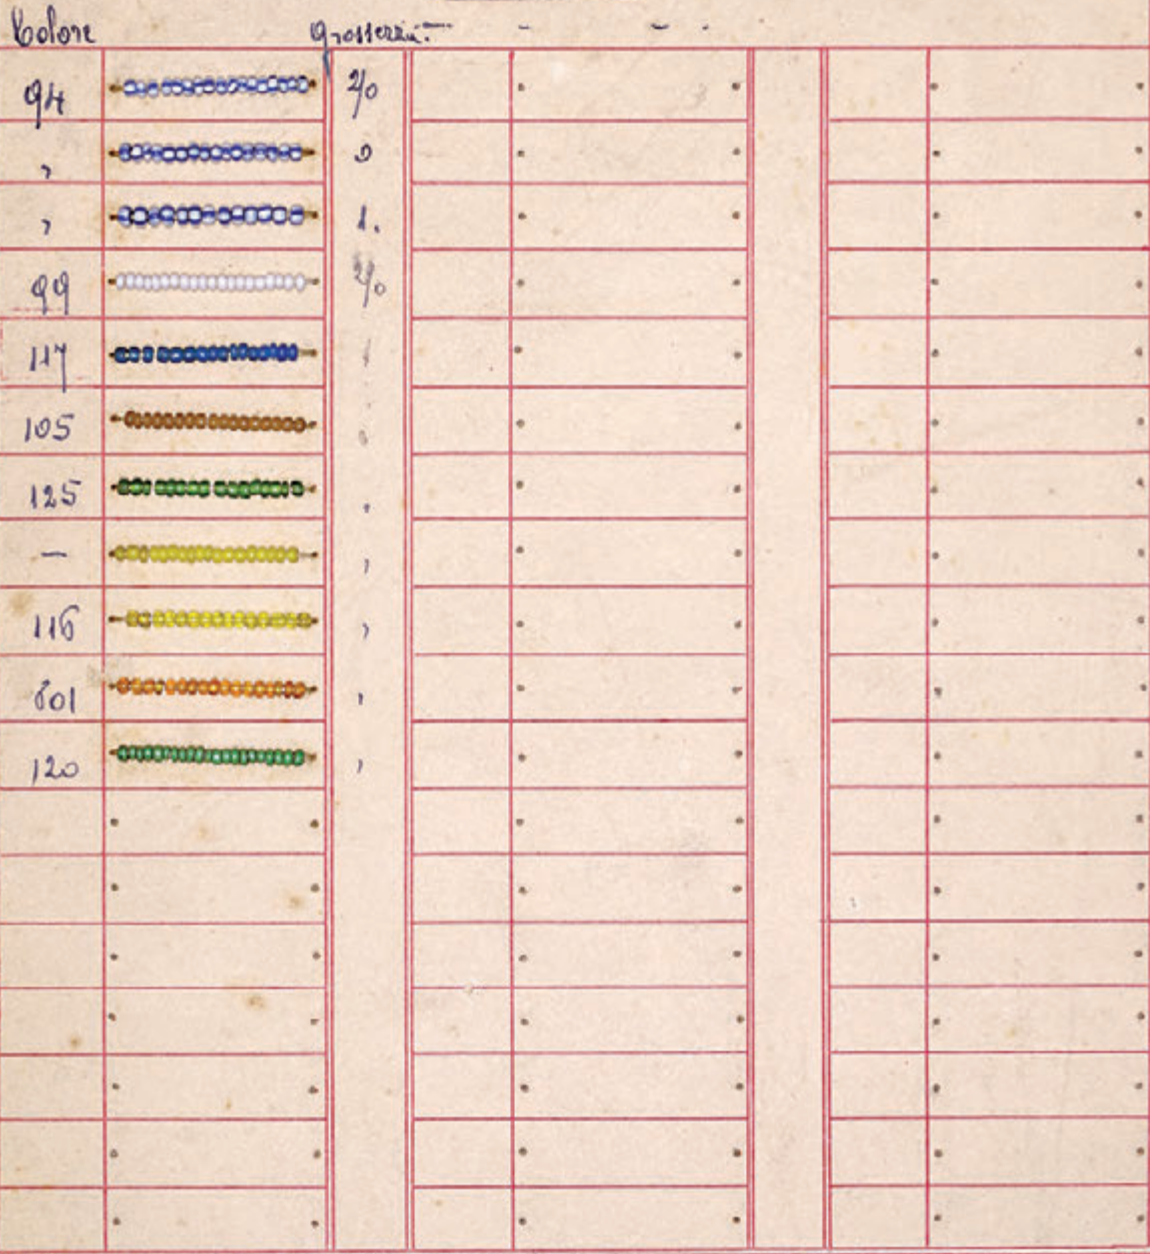 Colore Grossezza
94 2/0
, 0
, 1.
99 2/0
117
105
125 ,
— ,
116 ,
601 ,
120 ,